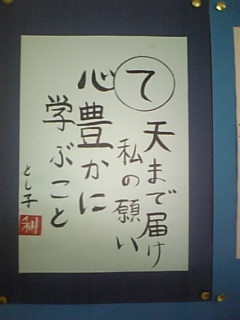 て
天まで届け
私の願い
心豊かに
学ぶこと
とし子